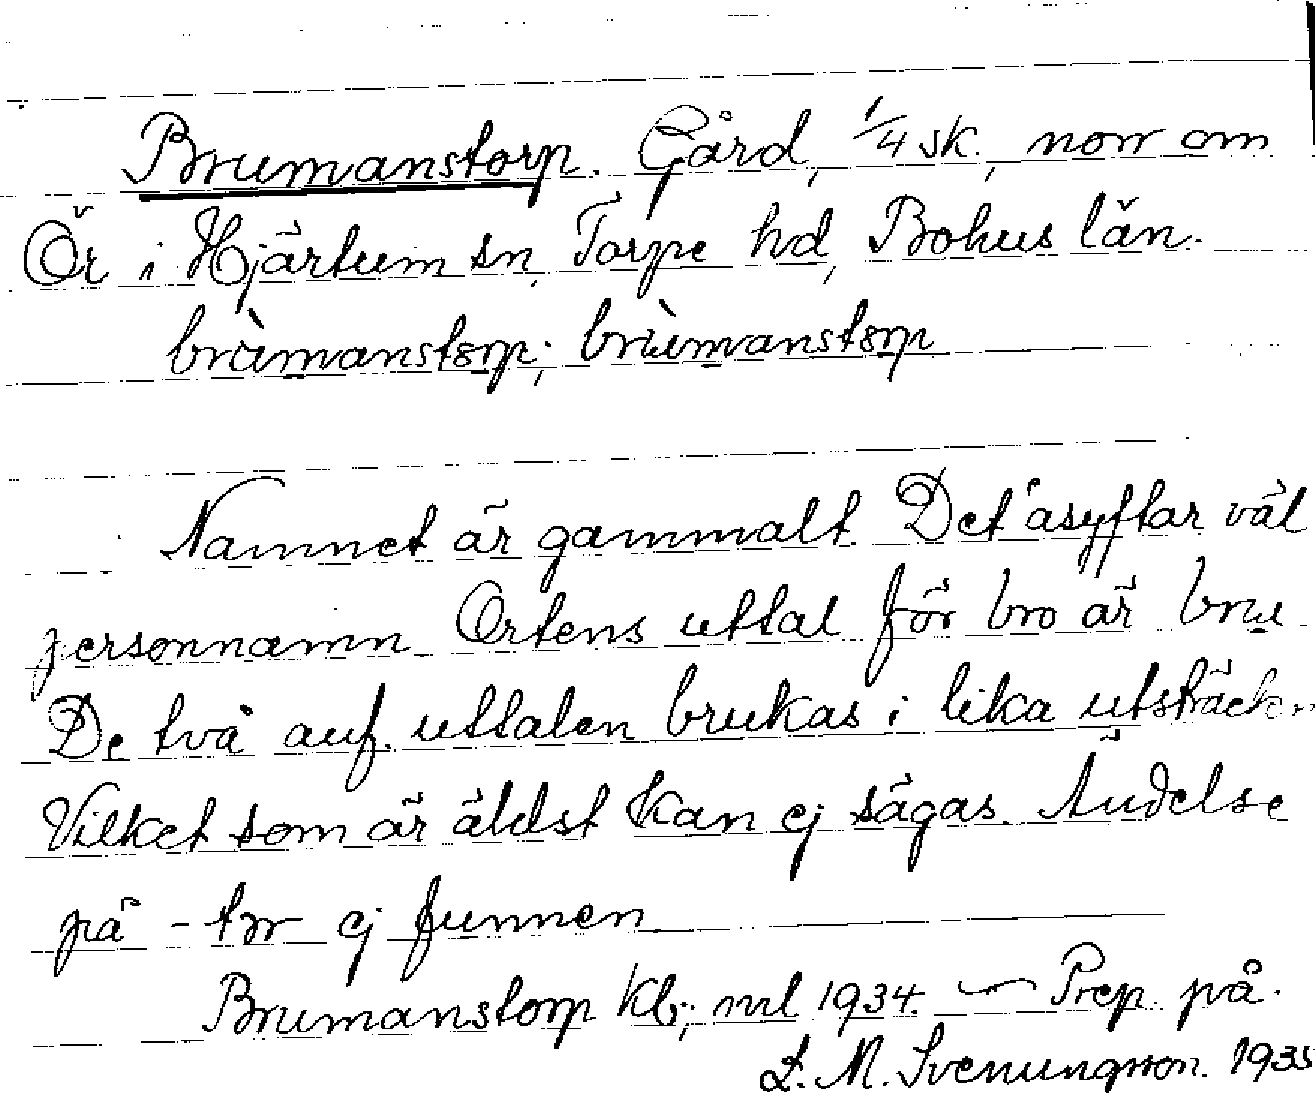 Brumanstorp. Gård, 1/4 sk., norr om
Ör i Hjärtum sn, Torpe hd, Bohus län.
brùmanstorp; brùmanstorp
Namnet är gammalt. Det åsyftar väl
personnamn. Ortens uttal för bro är bru.
De två auf. uttalen brukas i lika utsträckn
Vilket som är äldst kan ej sägas. Ändelse
på - torr ej funnen
Brumanstorp Kb; mtl 1934. — Prep. på.
L. M. Svenungsson. 1935